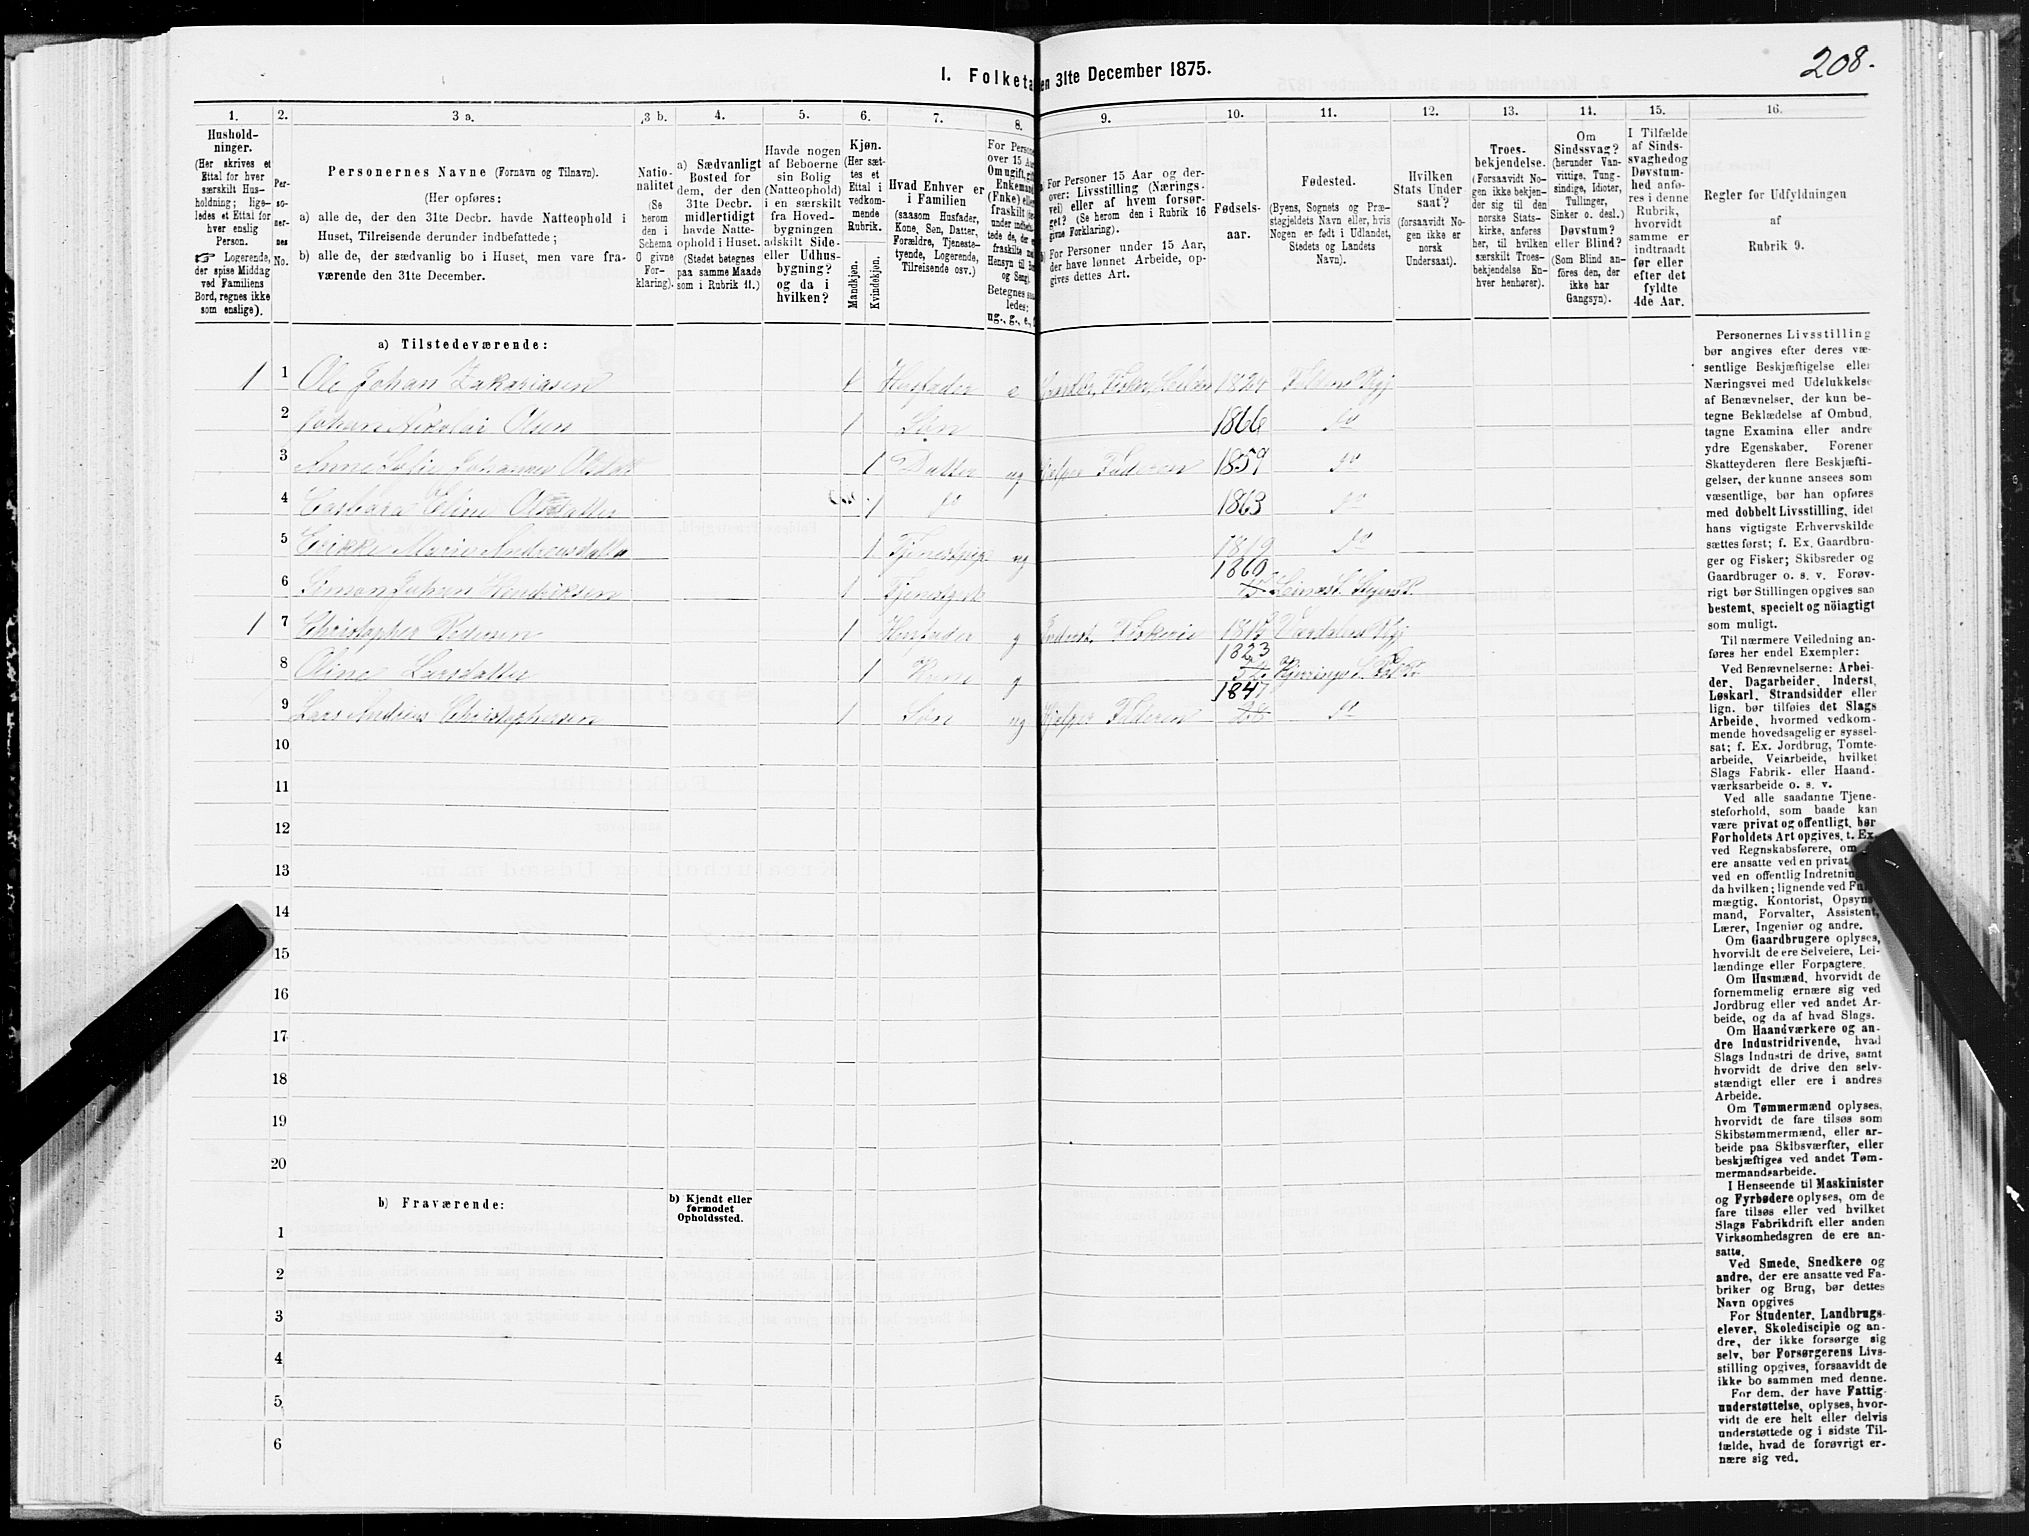 208.
I. Folketa en 31te December 1875.
1.
Hushold-
ninger.
(Her skrives et
Ettal for hver
særskilt Hus-
holdning; lige-
ledes et Ettal for
hver enslig
Person.
☞ Logerende,
der spise Middag
ved Familiens
Bord, regnes ikke
som enslige).
2.
Per-
so-
ner-
nes
No.
3 a.
Personernes Navne (Fornavn og Tilnavn).
(Her opføres:
a) alle de, der den 31te Decbr. havde Natteophold i
Huset, Tilreisende derunder indbefattede;
b) alle de, der sædvanlig bo i Huset, men vare fra-
værende den 31te December.
3 b.
Natio-
nalitet
(Se
herom
den i
Schema
O givne
For-
klaring).
4.
a) Sædvanligt
Bosted for
dem, der den
31te Decbr.
midlertidigt
havde Natte-
ophold i Huset.
(Stedet betegnes
paa samme Maade
som i Rubrik 11.)
5.
Havde nogen
af Beboerne
sin Bolig
(Natteophold)
i en særskilt
fra Hoved-
bygningen
adskilt Side-
eller Udhus-
bygning?
og da i
hvilken?
6.
Kjøn.
(Her sæt-
tes et
Ettal i
vedkom-
mende
Rubrik.
Mandkjøn.
Kvindekjøn.
7.
Hvad Enhver er
i Familien
(saasom Husfader,
Kone, Søn, Datter,
Forældre, Tjeneste-
tyende, Logerende,
Tilreisende osv.)
8.
For Persone
over 15 Aar
Om ugift, gift
Enkemand
(Enke) eller
fraskilt
Betegnes saa
ledes:
ug., g., e.,
9.
a) For Personer 15 Aar og der-
over: Livsstilling (Nærings-
vei) eller af hvem forsør-
get? (Se herom den i Rubrik 16
givne Forklaring).
b) For Personer under 15 Aar,
der have lønnet Arbeide, op-
gives dettes Art.
10.
Fødsels-
aar.
11.
Fødested.
(Byens, Sognets og Præ-
stegjeldets Navn eller, hvis
Nogen er født i Udlandet,
Stedets og Landets
Navn).
12.
Hvilken
Stats Under
saat?
(forsaavidt No-
gen ikke er
norsk
Undersaat).
13.
Troes-
bekjendelse.
(Forsaavidt No-
gen ikke bekjen-
der sig til den
norske Stats-
kirke, anføres
her, til hvilken
særskilt Troes-
bekjendelse En-
hver henhører).
14.
Om
Sindssvag?
(herunder Van-
vittige, Tung-
sindige, Idioter,
Tullinger,
Sinker o. desl.)
Døvstum?
eller Blind?
(Som Blind an-
føres den, der
ikke har
Gangsyn).
15.
I Tilfælde
af Sinds-
svaghed og
Døvstum-
hed anfø-
res i denne
Rubrik,
hvorvidt
samme er
indtraadt
før eller
efter det
fyldte
4de Aar.
16.
Regler for Udfyldningen
af
Rubrik 9.
a) Tilstedeværende:
1 1 Ole Johan Zakariasen 1 Husfader e 1824
2 Johan Nikolai Olsen 1 Søn 1866 do
3 1 Datter ug Hjelper Faderen 1859 do
4 Eline Olsdatter 1 do 1863 do
5 Marie Andreasdatter 1 Tjenestepige ug 1819 do
6 Simon Johan Hendriksen 1 1860
1 7 Christopher Pedersen 1 Husfader g Fiskeri
8 Oline Larsdatter 1 Kone g 1823
9 Lars Andreas Christophersen 1 Søn ug Hjelper Faderen 1847 28 do
10
11
12
13
14
15
16
17
18
19
20
b) Fraværende:
b) Kjendt eller
formodet
Opholdssted.
1
2
3
4
5
6
Personernes Livsstilling
bør angives efter deres væ-
sentlige Beskjæftigelse eller
Næringsvei med Udelukkelse
af Benævnelser, der kun be-
tegne Beklædelse af Ombud,
tagne Examina eller andre
ydre Egenskaber. Forener
Skatteyderen flere Beskjæfti-
gelser, der kunne ansees som
væsentlige, bør han opføres
med dobbelt Livsstilling, idet
hans vigtigste Erhvervskilde
sættes først; f. Ex. Gaardbru-
ger og Fisker; Skibsreder og
Gaardbruger o. s. v. Forøv-
rigt bør Stillingen opgives saa
bestemt, specielt og nöiagtigt
som muligt.
Til nærmere Veiledning an-
føres her endel Exempler:
Ved Benævnelserne: Arbei-
der, Dagarbeider, Inderst,
Løskarl, Strandsidder eller
lign. bør tilføies det Slags
Arbeide, hvormed vedkom-
mende hovedsagelig er syssel-
sat; f. Ex. Jordbrug, Tomte-
arbeide, Veiarbeide, hvilket
Slags Fabrik- eller Haand-
værksarbeide o. s. v.
Ved alle saadanne Tjene-
steforhold, som baade kan
være privat og offentligt, bør
Forholdets Art opgives, t. Ex.
ved Regnskabsførere, om
ere ansatte ved en privat
ved en offentlig Indretning
da hvilken; lignende ved Fuld-
mægtig, Kontorist, Opsyns-
mand, Forvalter, Assistent,
Lærer, Ingeniør og andre.
Om Gaardbrugere oplyses,
hvorvidt de ere Selveiere, Lei-
lændinge eller Forpagtere.
Om Husmænd, hvorvidt de
fornemmelig ernære sig ved
Jordbrug eller ved andet Ar-
beide, og da af hvad Slags.
Om Haandværkere og an-
dre Industridrivende, hvad
Slags Industri de drive, samt
hvorvidt de drive den selv-
stændigt eller ere i andres
Arbeide.
Om Tømmermænd oplyses,
hvorvidt de fare tilsøs som
Skibstømmermænd, eller ar-
beide paa Skibsværfter, eller
beskjæftiges ved andet Tøm-
mermandsarbeide.
I Henseende til Maskinister
og Fyrbødere oplyses, om de
fare tilsøs eller ved hvilket
Slags Fabrikdrift eller anden
Virksomhedsgren de ere an-
satte.
Ved Smede, Snedkere og
andre, der ere ansatte ved Fa-
briker og Brug, bør dettes
Navn opgives
For Studenter, Landbrugs-
elever, Skoledisciple og an-
dre, der ikke forsørge sig
selv, bør Forsørgerens Livs-
stilling opgives, forsaavidt de
ikke bo sammen med denne.
For dem, der have Fattig-
understøttelse, oplyses, hvor-
vidt de ere helt eller delvis
understøttede og i sidste Til-
fælde, hvad de forøvrigt er-
nære sig ved.